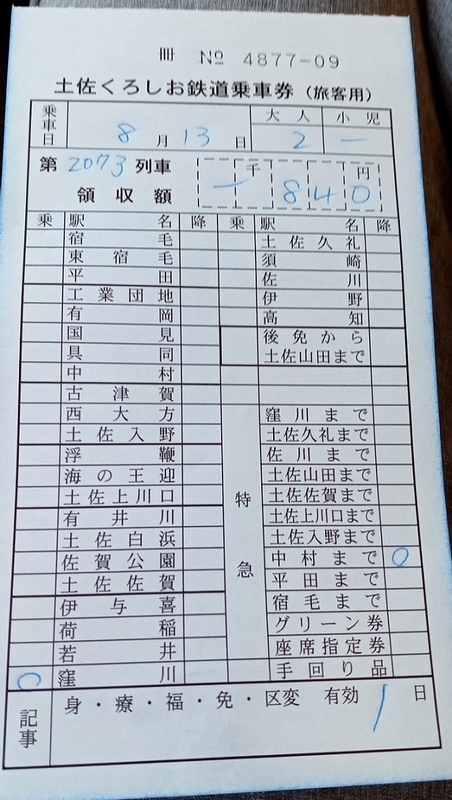 冊 № 4877-09
土佐くろしお鉄道乗車券(旅客用)
乗車日 8 月 13 日 大人 2 小児 一
第 2073 列車
領収額 一 千 840 円
乗 駅名 降 乗 駅名 降
宿毛 土佐久礼
東宿毛 須崎
平田 佐川
工業団地 伊野
有岡 高知
国見 後免から
具同 土佐山田まで
中村
古津賀
西大方 窪川まで
土佐入野 土佐久礼まで
浮鞭 佐川まで
海の王迎 土佐山田まで
土佐上川口 特急 土佐佐賀まで
有井川 土佐上川口まで
土佐白浜 土佐入野まで
佐賀公園 中村まで ○
土佐佐賀 平田まで
伊与喜 宿毛まで
荷稲 グリーン券
若井 座席指定券
○ 窪川 手回り品
記事 身・療・福・免・区変 有効 1 日